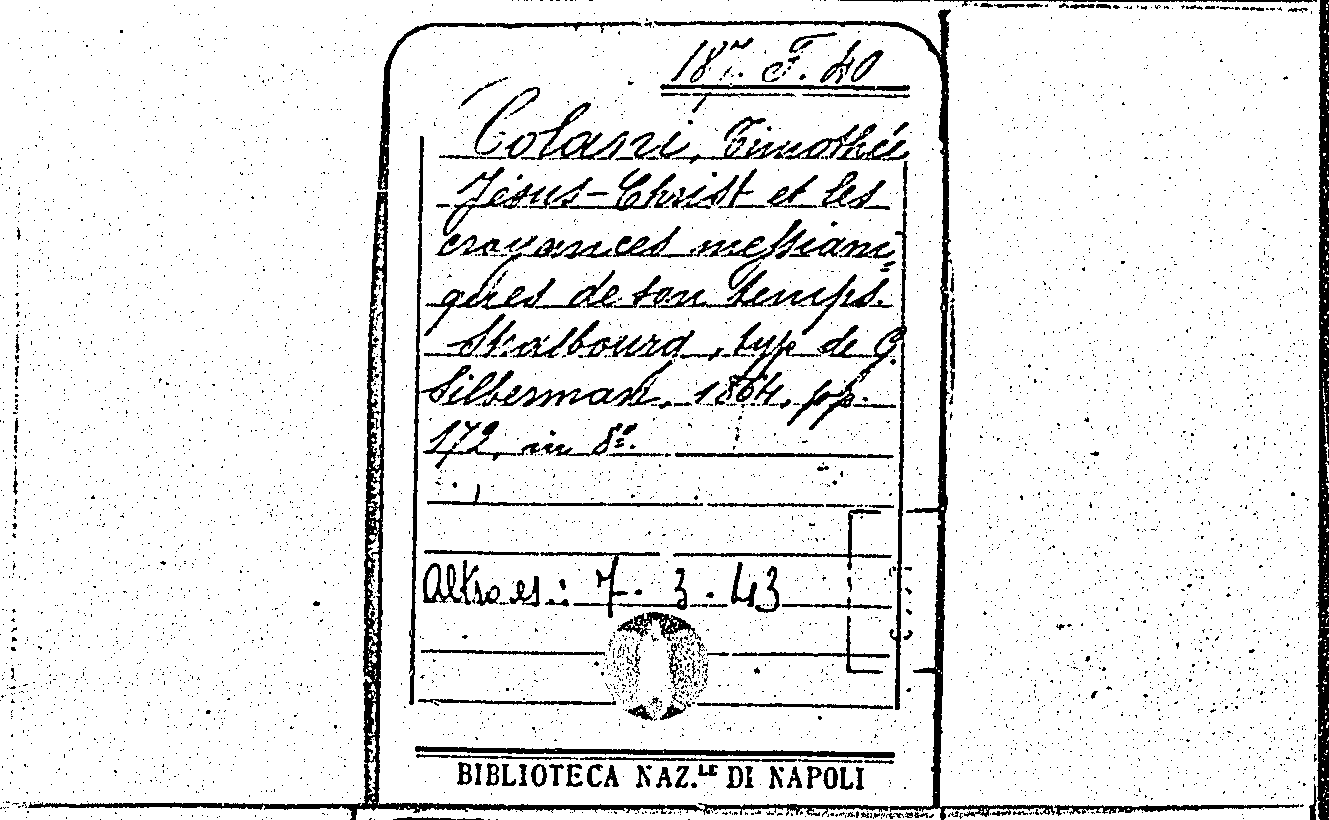 187. F. 40
Colani, Timothée
Jésus-Christ et les
croyances messiani
ques de son temps.
Strasbourg, typ de G.
Silberman, 1864, pp.
172, in 8º.
Altro es.: 7. 3. 43
BIBLIOTECA NAZ.LE DI NAPOLI